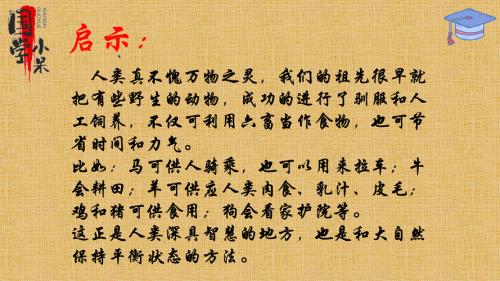 国学
小米
启示：
人类真不愧万物之灵，我们的祖先很早就
把有些野生的动物，成功的进行了驯服和人
工饲养，不仅可利用六畜当作食物，也可节
省时间和力气。
比如：马可供人骑乘，也可以用来拉车；牛
会耕田；羊可供应人类肉食、乳汁、皮毛；
鸡和猪可供食用；狗会看家护院等。
这正是人类深具智慧的地方，也是和大自然
保持平衡状态的方法。